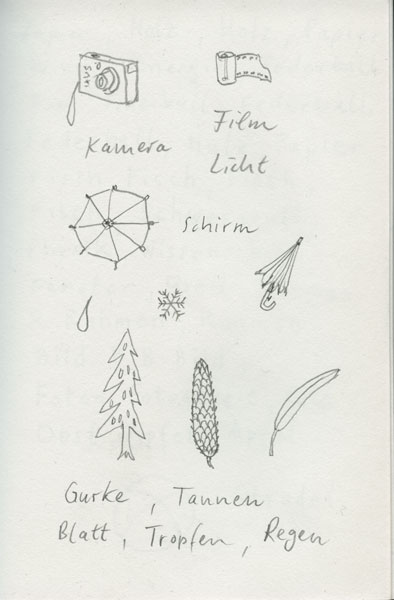 Kamera
Film
Licht
Schirm
Gurke, Tannen
Blatt, Tropfen, Regen